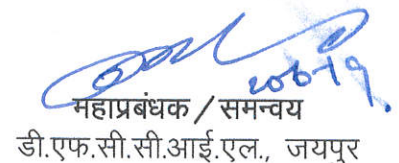 महाप्रबंधक / समन्वय
डी.एफ.सी.सी.आई.एल., जयपुर